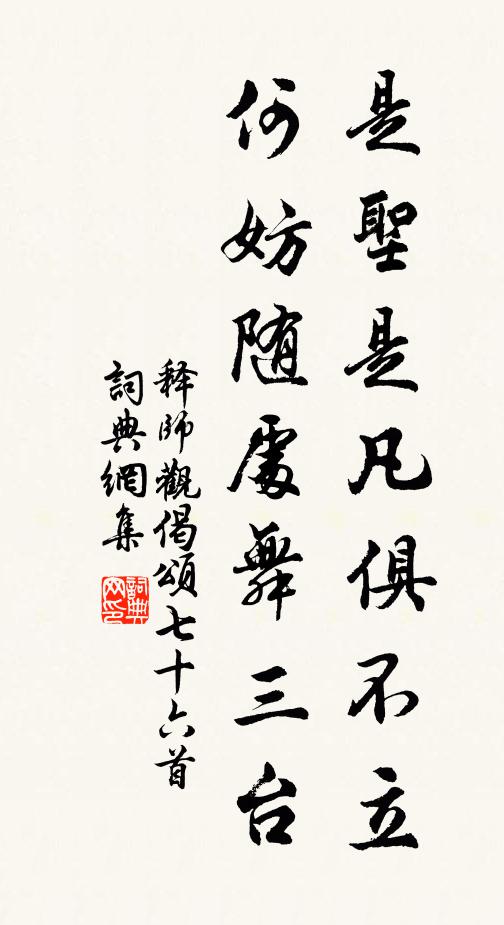 是聖是凡俱不立
何妨随處舞三台
释師觀偈頌七十六首
詞典網集
詞典网印